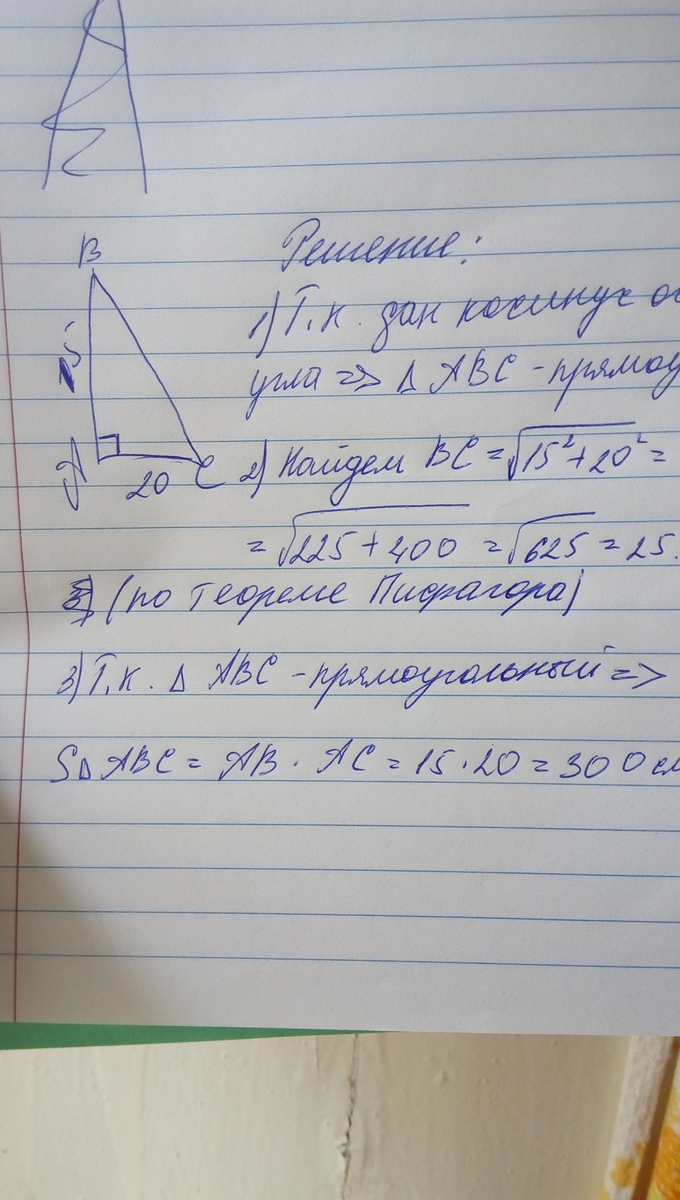 B
Решение:
1) Т.к. дан косинус ос
угла => Δ ABC - прямоу
15
A
20
C
2) Найдем BC = √15²+20² =
= √225 + 400 = √625 = 25.
(по теореме Пифагора)
3) Т.к. Δ ABC - прямоугольный =>
SΔ ABC = AB · AC = 15 · 20 = 300 см